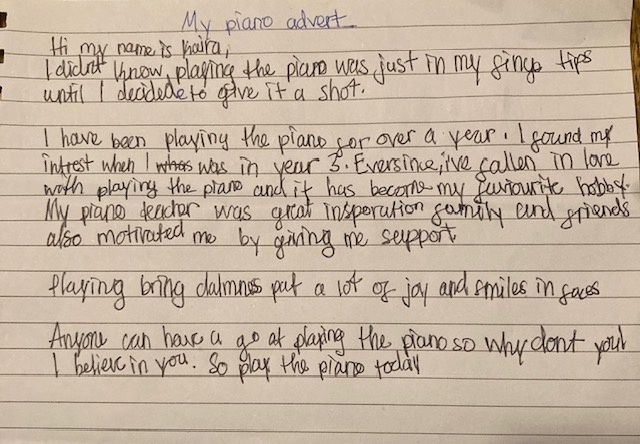 My piano advert
Hi my name is Kaira,
I didnt know, playing the piano was just in my finge tips
until I decidede to give it a shot.
I have been playing the piano for over a year. I found my
intrest when I was in year 3. Eversince, ive fallen in love
with playing the piano and it has become my favourite hobby.
My piano teacher was great insporation family and friends
also motivated me by giving me support
Playing bring calmness put a lot of joy and smiles in faces
Anyone can have a go at playing the piano so why dont you!
I believe in you. So play the piano today